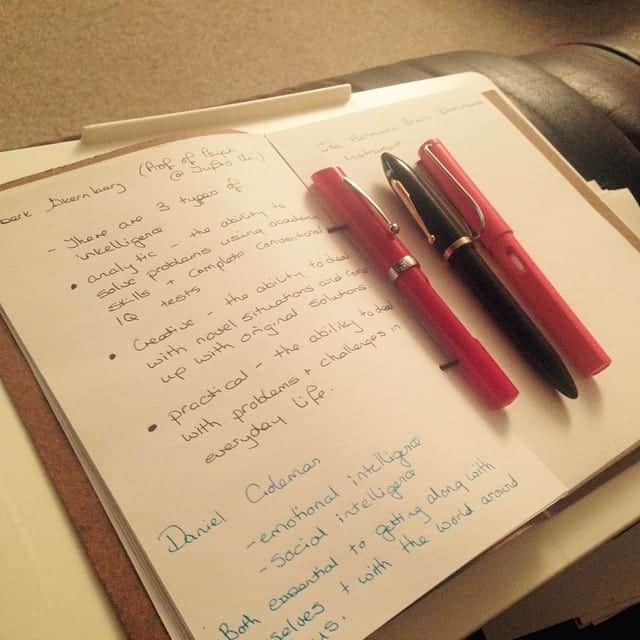 Sternberg (Prof of Psych
@ Tufts Uni)
- There are 3 types of
intelligence
• analytic - the ability to
solve problems using academic
skills + complete conventional
IQ tests
• Creative - the ability to deal
with novel situations and come
up with original solutions
• practical - the ability to deal
with problems + challenges in
everyday life.
Daniel Goleman
- emotional intelligence
- social intelligence
Both essential to getting along with
selves + with the world around
us.
The Hermann Brain Dominance
Instrument